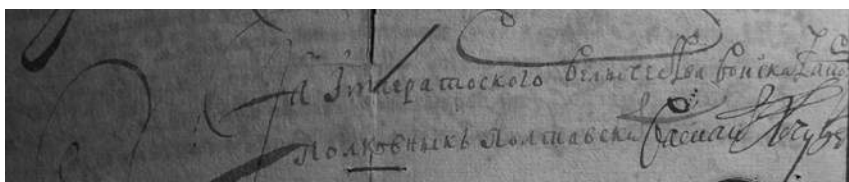 Імператоского величества воиска Запо
Полковныкъ Полтавски Василий Кочубе